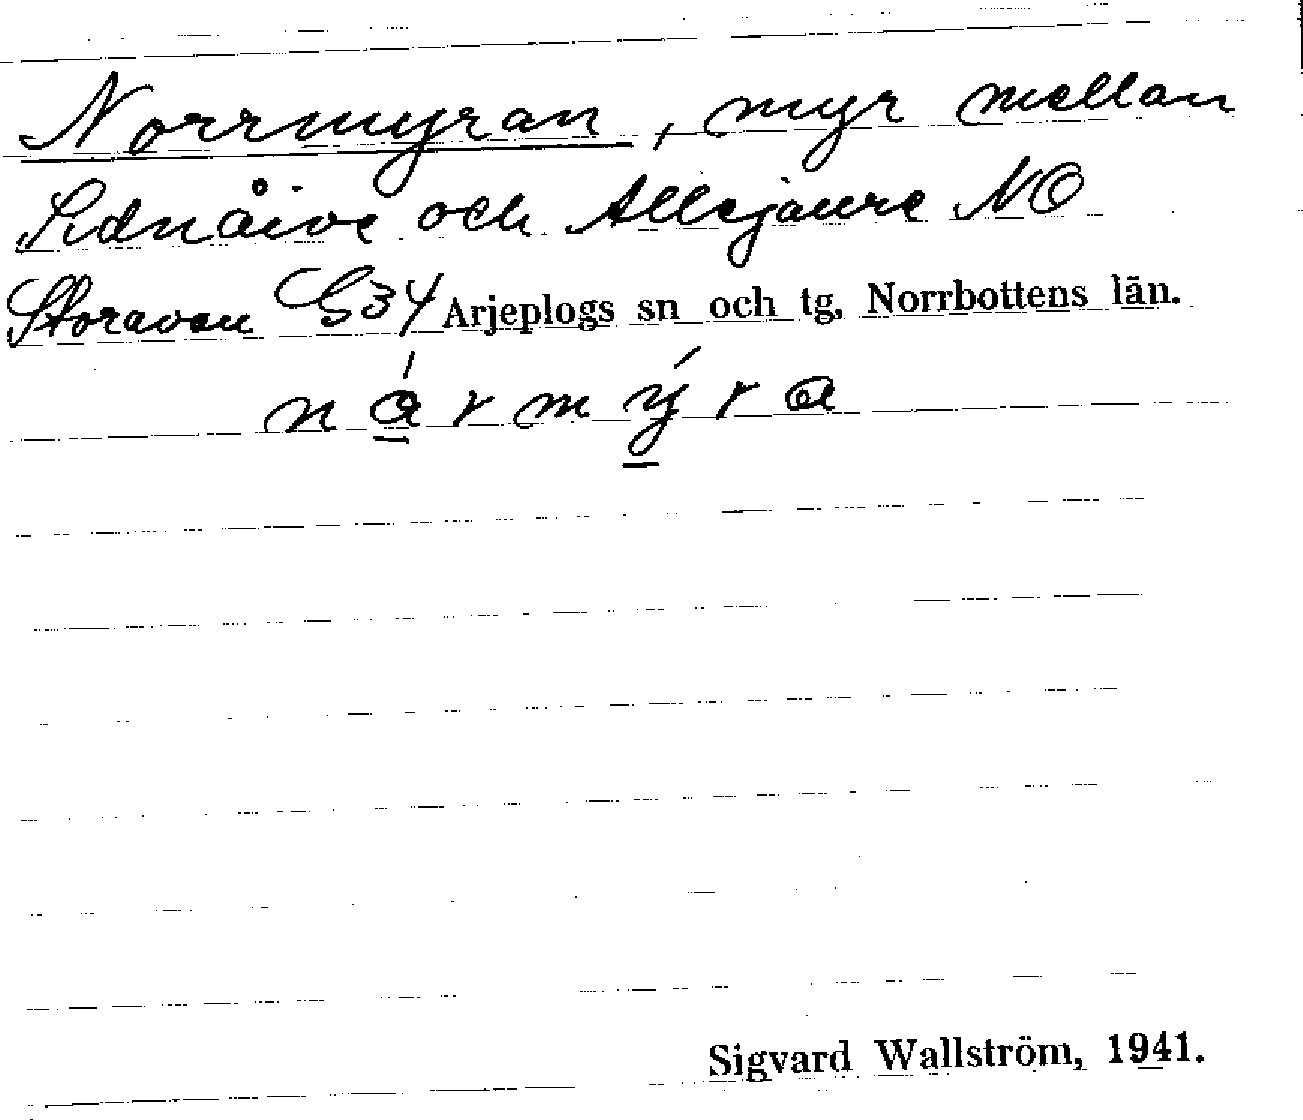 Norrmyran, myr mellan
och Allejaure NO
Storavan G34 Arjeplogs sn och tg, Norrbottens län.
nårmýra
Sigvard Wallström, 1941.